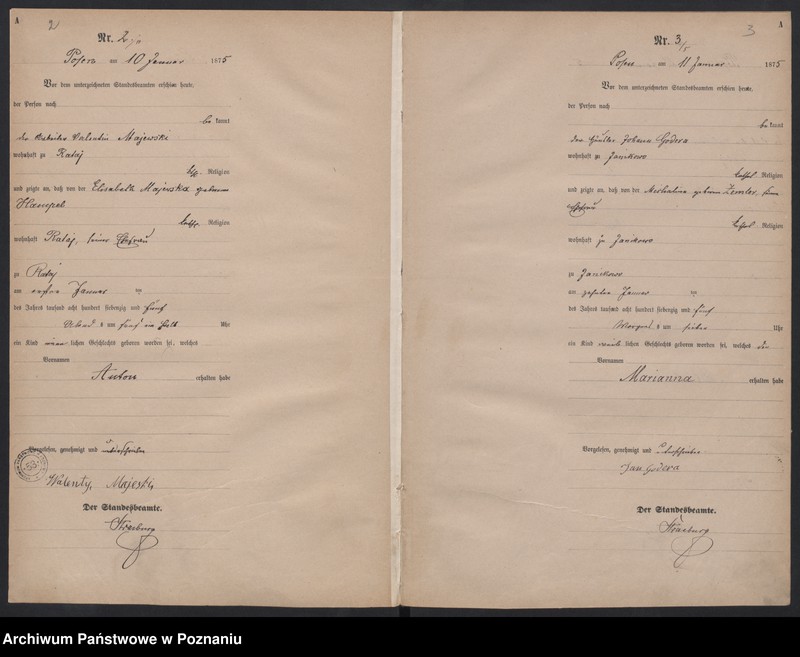 A
2
Nr. 2
Posen am 10 Januar 1875
Vor dem unterzeichneten Standesbeamten erschien heute,
der Person nach
be kannt
Valentin Majewski
wohnhaft zu Rataj
kath. Religion
und zeigte an, daß von der Elisabeth Majewska geborene
Hampel
kath. Religion
wohnhaft Rataj, seiner Ehefrau
zu Rataj
am ersten Januar
des Jahres tausend acht hundert siebenzig und fünf
Abend s um fünf ein halb Uhr
ein Kind männ lichen Geschlechts geboren worden sei, welches
Vornamen
Anton erhalten habe
Vorgelesen, genehmigt und unterschrieben
Walenty Majeski
Der Standesbeamte.
3
A
Nr. 3
Posen am 11 Januar 1875
Vor dem unterzeichneten Standesbeamten erschien heute,
der Person nach
be kannt
der Häusler Johann Godera
wohnhaft zu Janikowo
kathol. Religion
und zeigte an, daß von der geborene
Ehefrau
kathol. Religion
wohnhaft zu Janikowo
zu Janikowo
am zehnten Januar
des Jahres tausend acht hundert siebenzig und fünf
Morgens um sieben Uhr
ein Kind weib lichen Geschlechts geboren worden sei, welches den
Vornamen
Marianna erhalten habe
Vorgelesen, genehmigt und unterschrieben
Jan Godera
Der Standesbeamte.
Archiwum Państwowe w Poznaniu